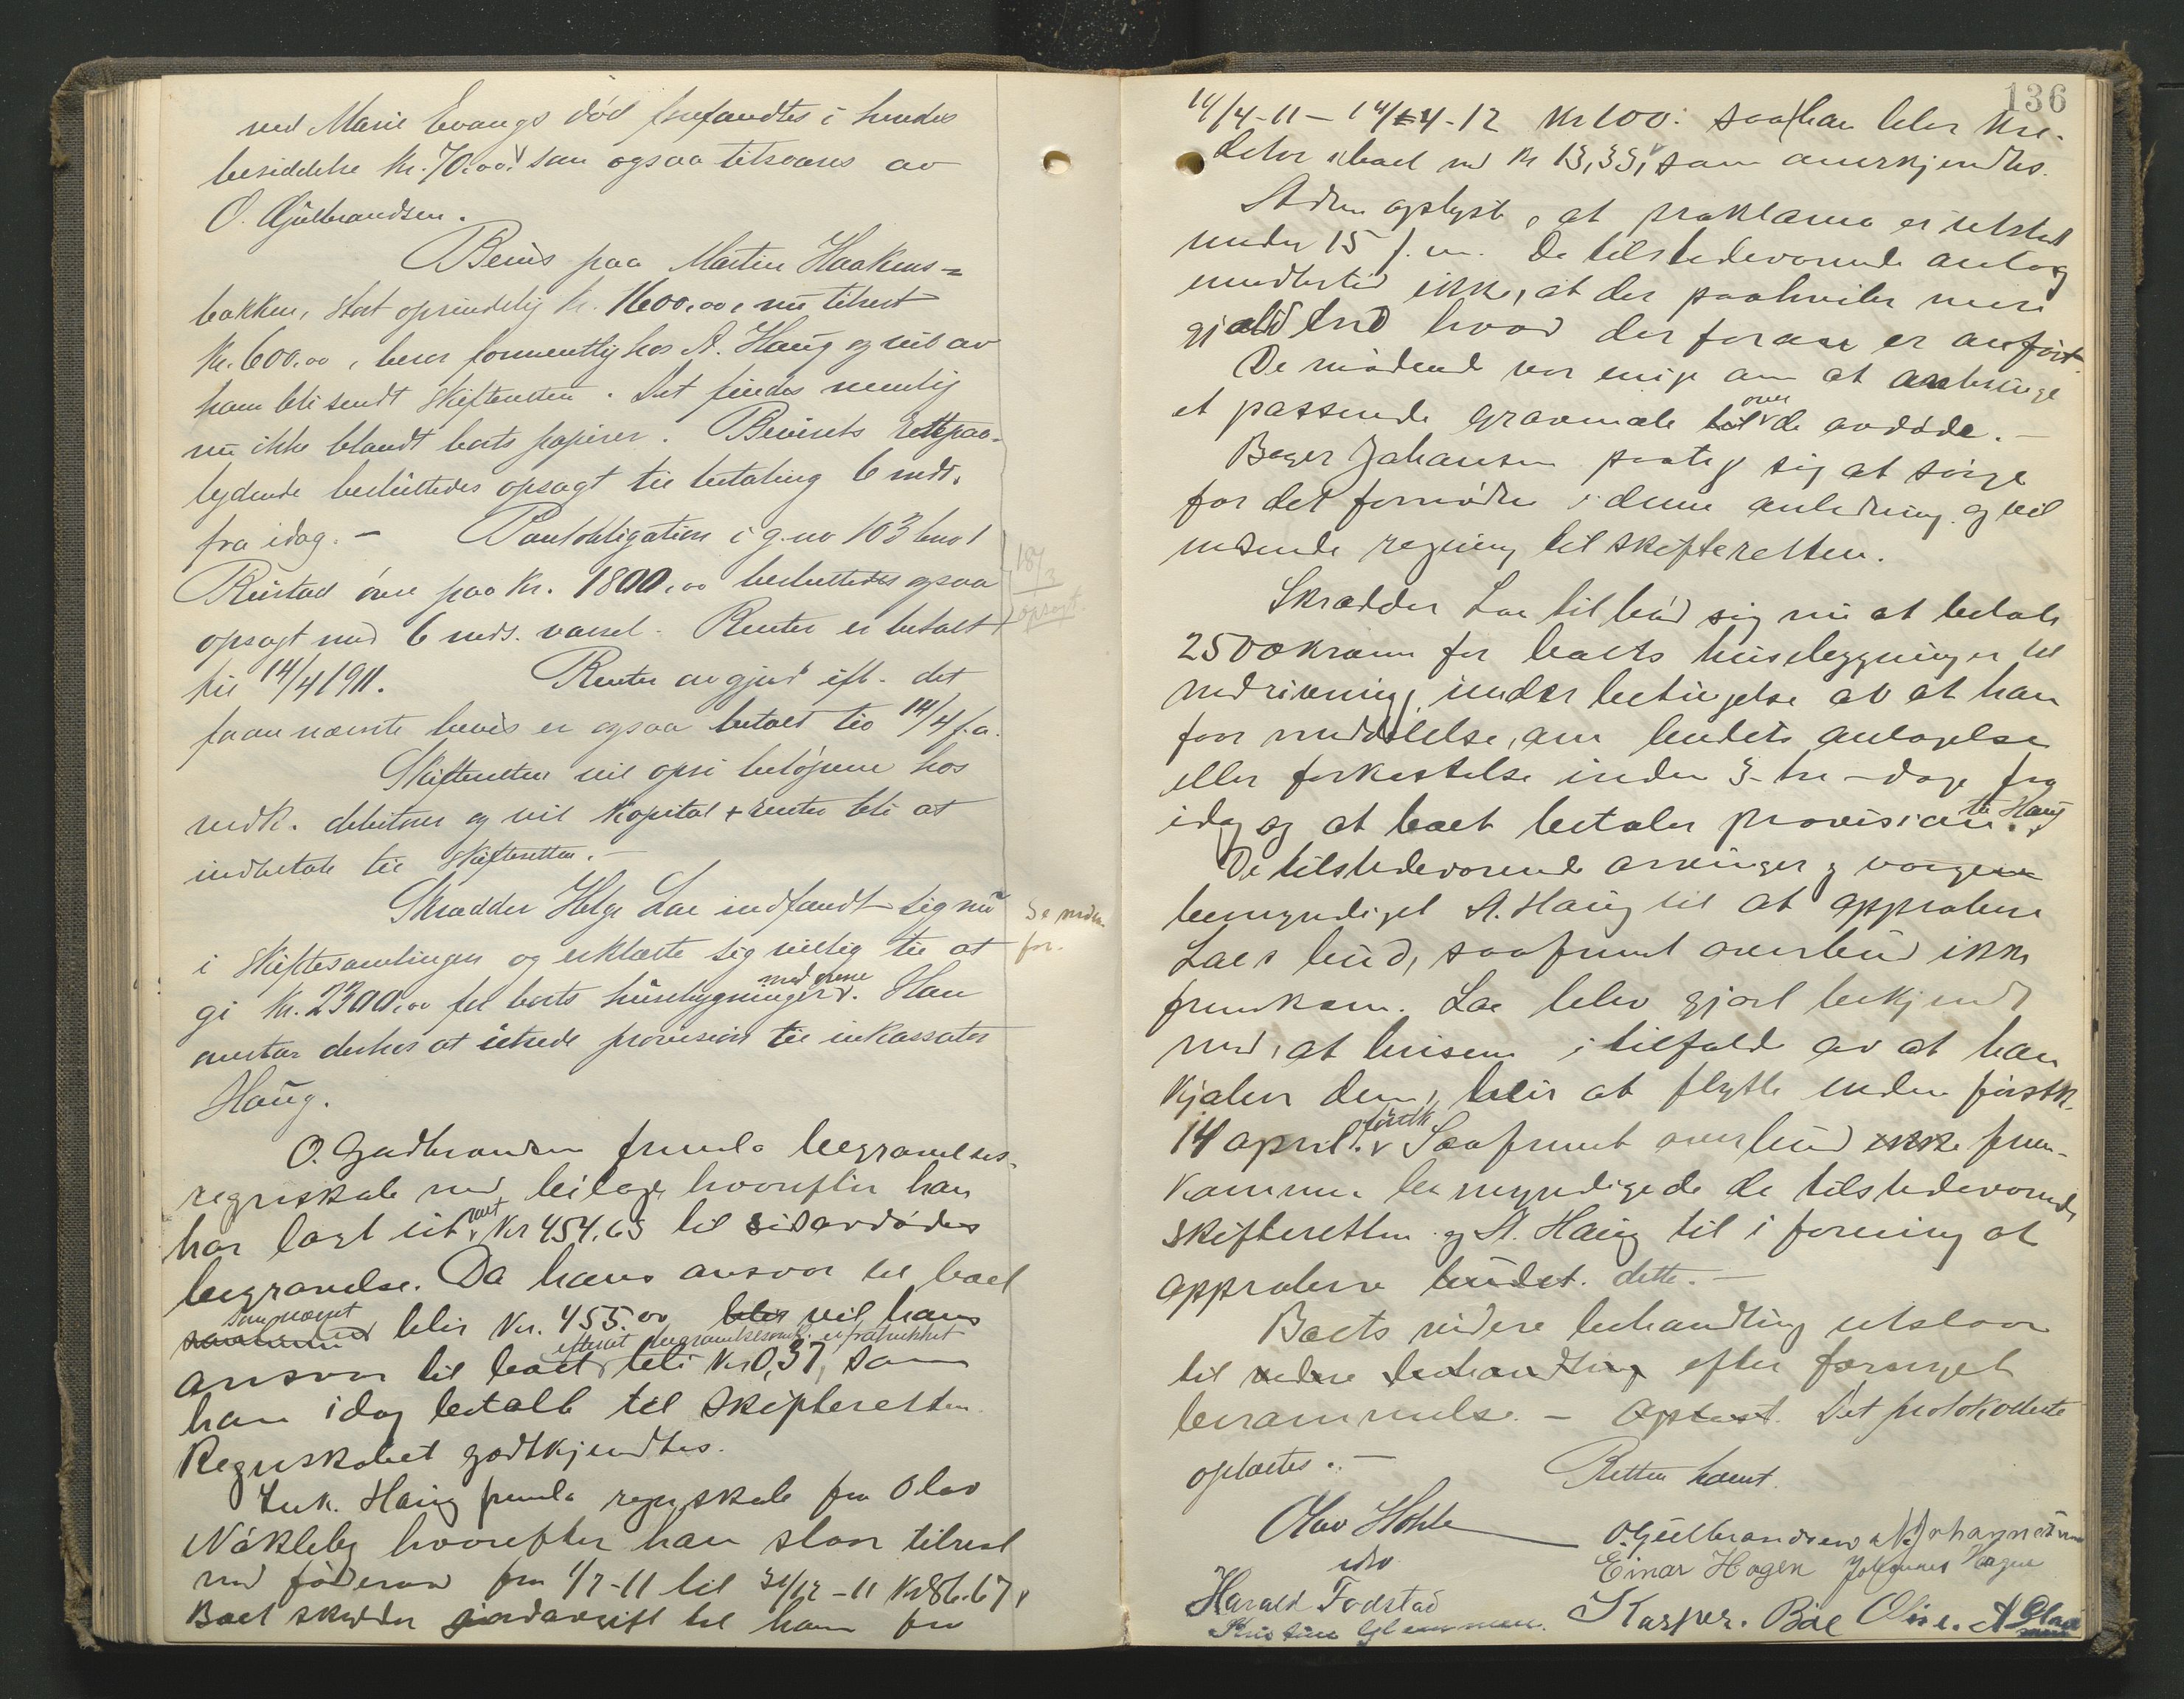 ved Marie Evangs död forefandtes i hendes
besiddelse Kr. 70.00. som ogsaa tilsvares av
O. Gulbrandsen.
Bevis paa Martin Haakens-
bakken, stort oprindelig kr. 1600.00, nu tilrest
Kr. 600.00, beror formentlig hos A. Haug og vil av
ham bli sendt skifteretten. Det findes nemlig
nu ikke blandt boets papirer. Bevisets
lydende besluttedes opsagt til betaling 6 mdr.
fra idag. - Pantobligation i g.no 103 bno 1
Rustad övre paa Kr. 1800.00 besluttedes ogsaa
opsagt med 6 mdrs. varsel. Renter er betalt
til 14/4 1911. Renter avgjort ifl. det
foran nævnte bevis er ogsaa betalt til 14/4 f.a.
Skifteretten vil opsi belöpene hos
vedk. debitorer og vil Kapital + renter bli at
indbetale til skifteretten. -
Skrædder Helge Lae indfandt sig nu
i skiftesamlingen og erklærte sig villig til at
gi Kr. 2300.00 for boets husbygninger med ovne. Han
overtar derhos at utrede provision til inkassator
Haug.
O. Gudbrandsen fremla begravelses-
regnskab med bilage hvorefter han
har lagt ut Kr 454.63 til sidavdödes
begravelse. Da hans ansvar til boet
som nævnt blir Kr. 455.00 vil hans
ansvar til boet efterat begravelsesomk. er fratrukket bli Kr 0,37, som
han idag betalte til skifteretten.
Regnskabet godkjendtes.
Ink. Haug fremla regnskab fra Olav
Nökleby hvorefter han staar tilrest
med föderaad fra 1/7-11 til 31/12-11 Kr 86.67,
Boet skylder jordavgift til ham fra
18/3
opsagt.
Se neden
for.
136
14/4-11 - 14/4-12 Kr 100: saa han blir kre-
ditor i boet med Kr 13,33, som anerkjendtes.
Adm oplyste, at proklama er utstedt
under 15 f.m. De tilstedeværende antog
imidlertid ikke, at der paahviler mere
gjæld end hvad der foran er anfört.
De mödende var enige om at anbringe
et passende gravmæle til over de avdöde. -
Bager Johansen paatog sig at sörge
for det fornödne i denne anledning og vil
indsende regning til skifteretten.
Skrædder Lae tilböd sig nu at betale
2500 kroner for boets husbygninger til
nedrivning, under betingelse av at han
faar meddelelse, om budets antagelse
eller forkastelse inden 3 - tre - dage fra
idag og at boet betaler provision til Haug.
De tilstedeværende arvinger og vergen
bemyndiget A. Haug til at approbere
Laes bud, saafremt overbud ikke
fremkom. Lae blev gjort bekjendt
med, at husene i tilfælde av at han
kjöber dem, blir at flytte inden förstk.
14 april. Saafremt overbud ikke frem-
kommer bemyndigede de tilstedeværende
skifteretten og A. Haug til i forening at
approbere budet. dette. -
Boets videre behandling utstaar
til videre behandling efter forsvarlig
berammelse. - Oplæst. Det protokollerte
oplæstes. - Retten hævet.
Olav Hohle
O. Gulbrandsen N. Johannesen
Einar Hagen Johannes Hagen
Harald Fodstad
Kasper. Böe